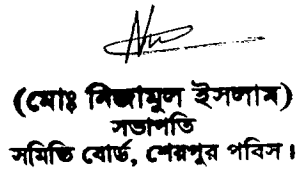 (মোঃ নিজামুল ইসলাম)
সভাপতি
সমিতি বোর্ড, শেরপুর পবিস।